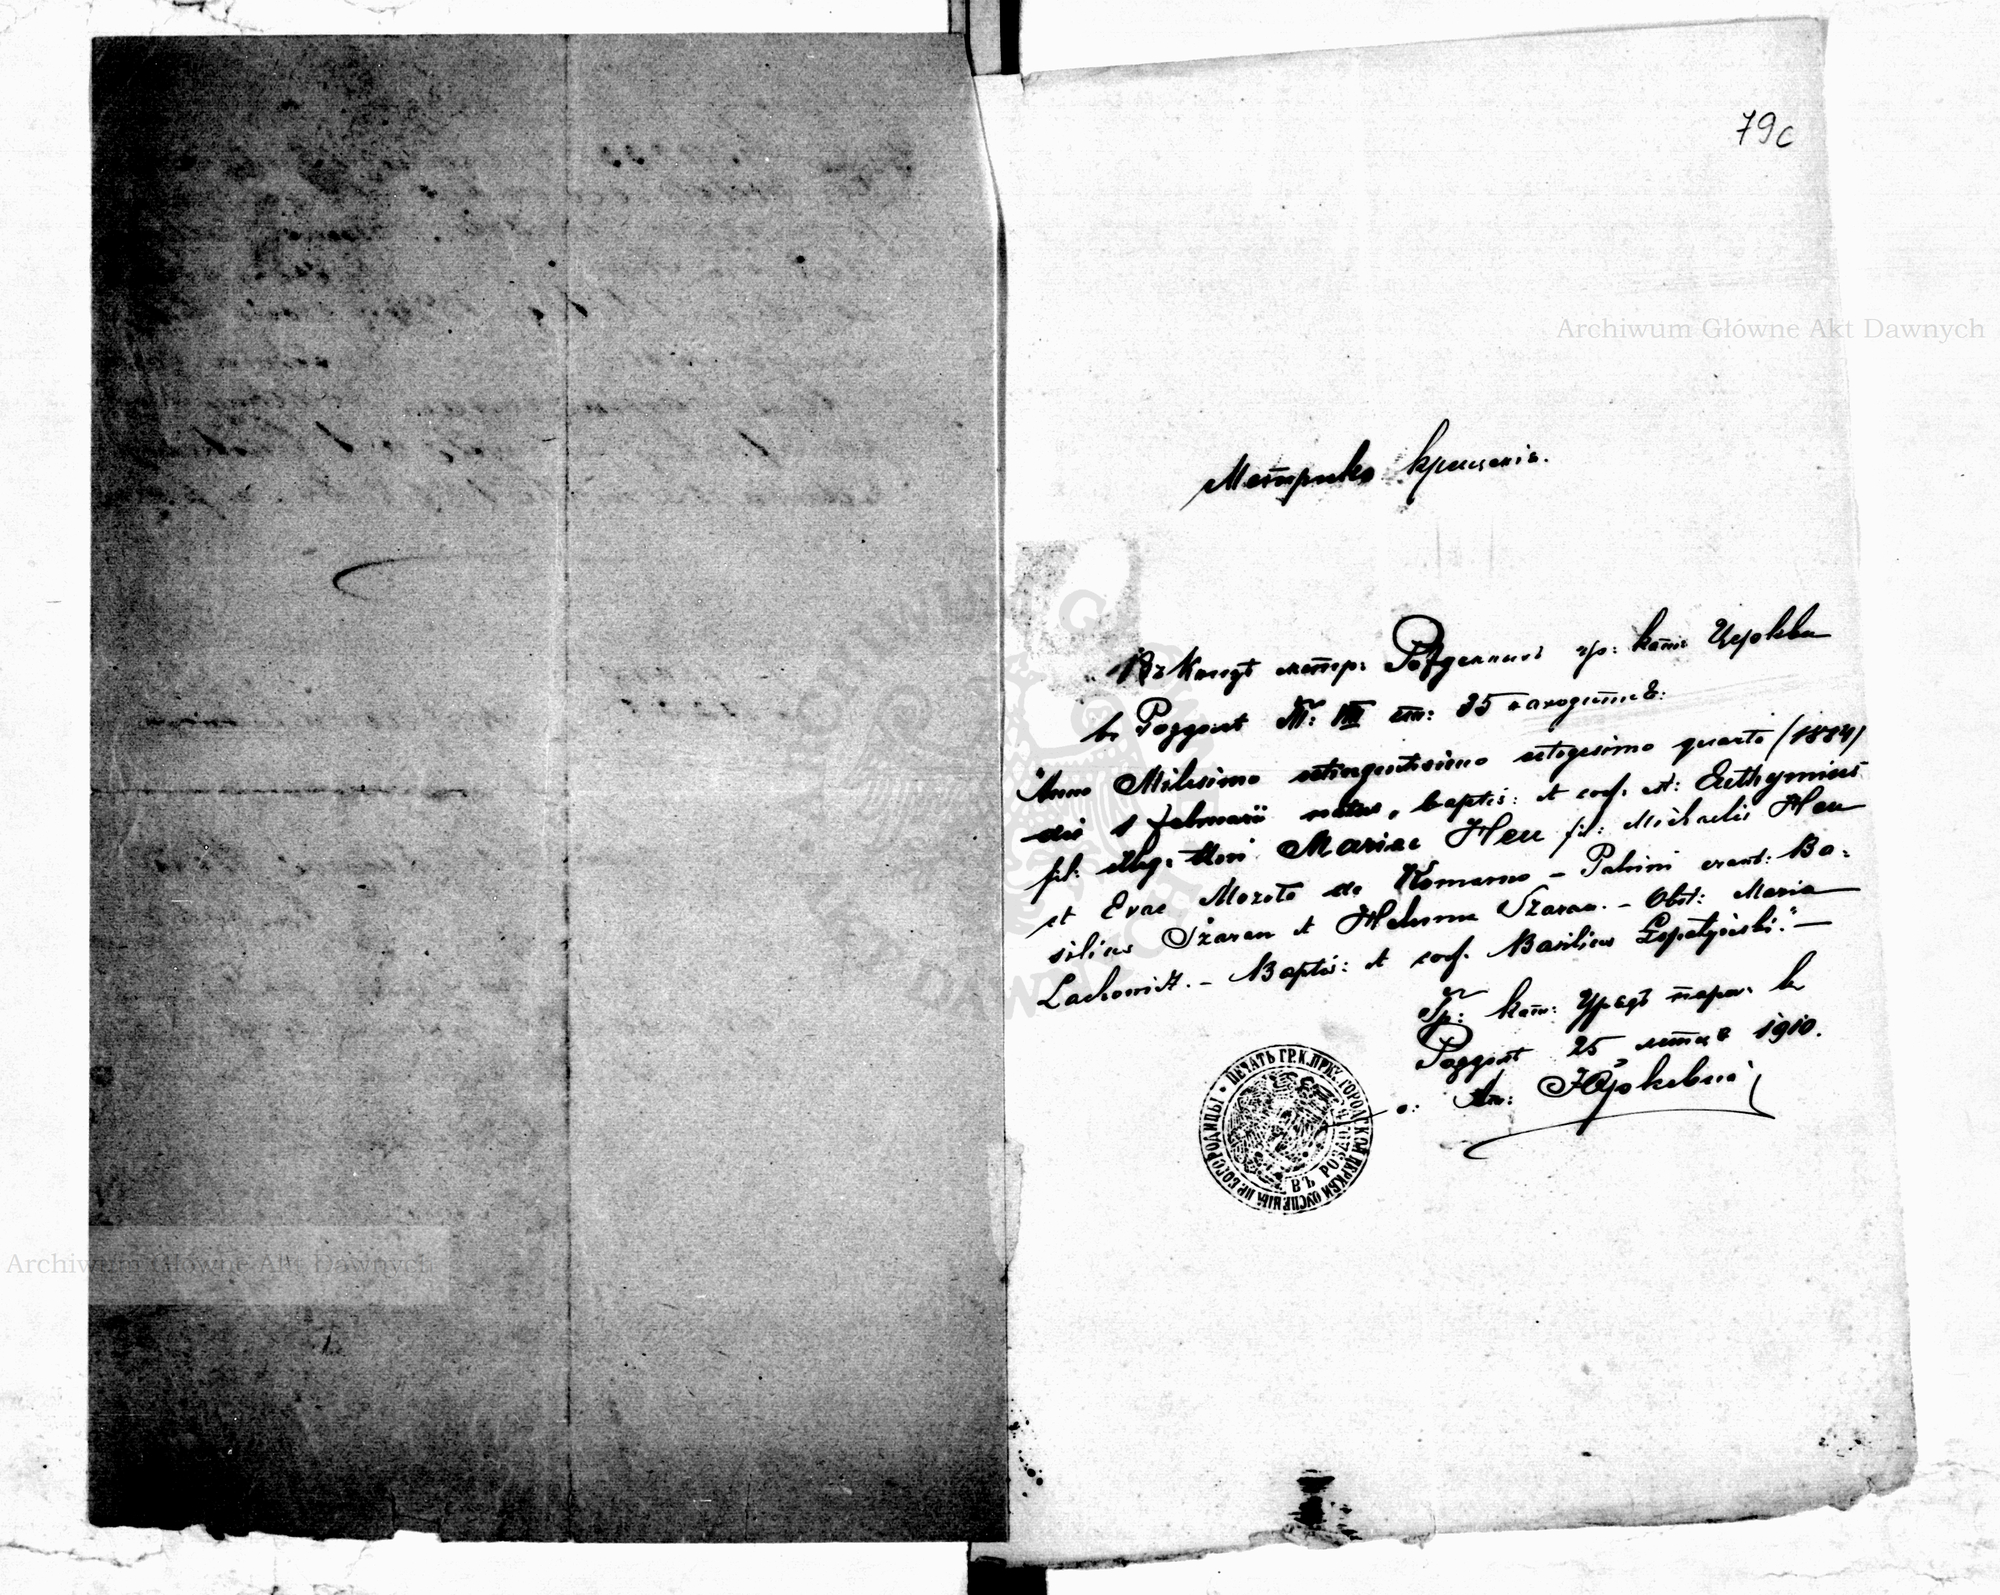 79c
Archiwum Główne Akt Dawnych
Метрика крищенія.
Въ Книзѣ метр: Рожденныхъ гр: кат: Церкви
в Роздолѣ Т: VIII ст: 35 находится:
"Anno Milesimo octingentisimo octogesimo quarto (1884)
die 1 februarii natus, baptis: et conf. est: Euthymius
fil: illeg. tori Mariae Heu fil: Michaelis Heu
et Evae Mozoła de Komarno – Patrini erant: Ba-
silius Szaran et Helena Szaran. – Obst: Maria
Lachowicz. – Baptis: et conf. Basilius Łopatyński." –
Гр: кат: Урядъ пара: в
Роздолѣ 25 1910.
о:
ПЕЧАТЬ ГР.К. ГОРОДСКОИ ЦЕРКВИ ОУСПЕНІЯ ПР БОГОРОДИЦЫ
ВЪ РОЗДОЛѢ
Archiwum Główne Akt Dawnych